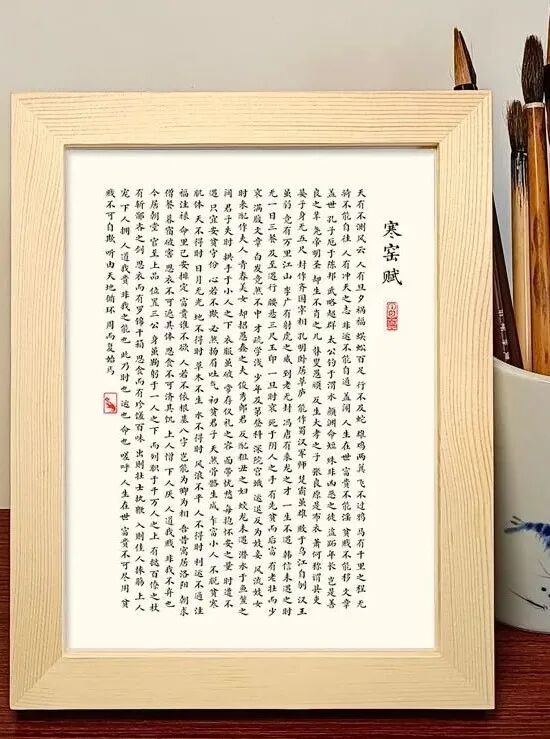 寒窑赋
天有不测风云 人有旦夕祸福 蜈蚣百足 行不及蛇 雄鸡两翼 飞不过鸦 马有千里之程 无
骑不能自往 人有冲天之志 非运不能自通 盖闻 人生在世 富贵不能淫 贫贱不能移 文章
盖世 孔子厄于陈邦 武略超群 太公钓于渭水 颜渊命短 殊非凶恶之徒 盗跖年长 岂是善
良之辈 尧帝明圣 却生不肖之儿 瞽叟愚顽 反生大孝之子 张良原是布衣 萧何称谓县吏
晏子身无五尺 封作齐国宰相 孔明卧居草庐 能作蜀汉军师 楚霸虽雄 败于乌江自刎 汉王
虽弱 竟有万里江山 李广有射虎之威 到老无封 冯唐有乘龙之才 一生不遇 韩信未遇之时
无一日三餐 及至遇行 腰悬三尺玉印 一旦时衰 死于阴人之手 有先贫而后富 有老壮而少
衰 满腹文章 白发竟然不中 才疏学浅 少年及第登科 深院宫娥 运退反为妓妾 风流妓女
时来配作夫人 青春美女 却招愚蠢之夫 俊秀郎君 反配粗丑之妇 蛟龙未遇 潜水于鱼鳖之
间 君子失时 拱手于小人之下 衣服虽破 常存仪礼之容 面带忧愁 每抱怀安之量 时遭不
遇 只宜安贫守份 心若不欺 必然扬眉吐气 初贫君子 天然骨骼生成 乍富小人 不脱贫寒
肌体 天不得时 日月无光 地不得时 草木不生 水不得时 风浪不平 人不得时 利运不通 注
福注禄 命里已安排定 富贵谁不欲 人若不依根基八字 岂能为卿为相 吾昔寓居洛阳 朝求
僧餐 暮宿破窖 思衣不可遮其体 思食不可济其饥 上人憎 下人厌 人道我贱 非我不弃也
今居朝堂 官至上品 位置三公 身虽鞠躬于一人之下 而列职于千万人之上 有挞百僚之杖
有斩鄙吝之剑 思衣而有罗锦千箱 思食而有珍馐百味 出则壮士执鞭 入则佳人捧觞 上人
宠 下人拥 人道我贵 非我之能也 此乃时也 运也 命也 嗟呼 人生在世 富贵不可尽用 贫
贱不可自欺 听由天地循环 周而复始焉